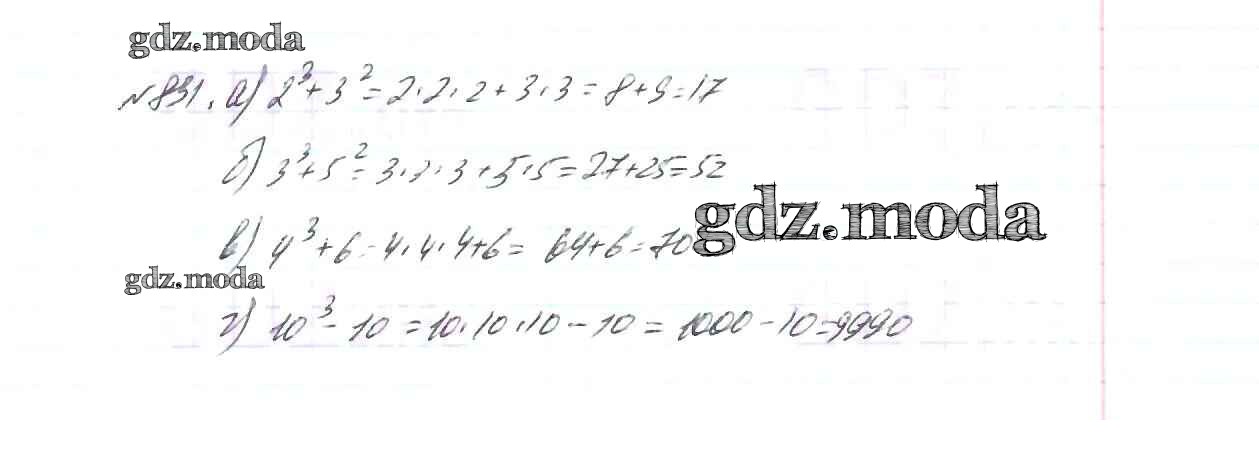 gdz.moda
№831. а) 2³+3²=2·2·2+3·3=8+9=17
б) 3³+5²=3·3·3+5·5=27+25=52
gdz.moda
в) 4³+6=4·4·4+6=64+6=70
gdz.moda
г) 10³-10=10·10·10-10=1000-10=9990